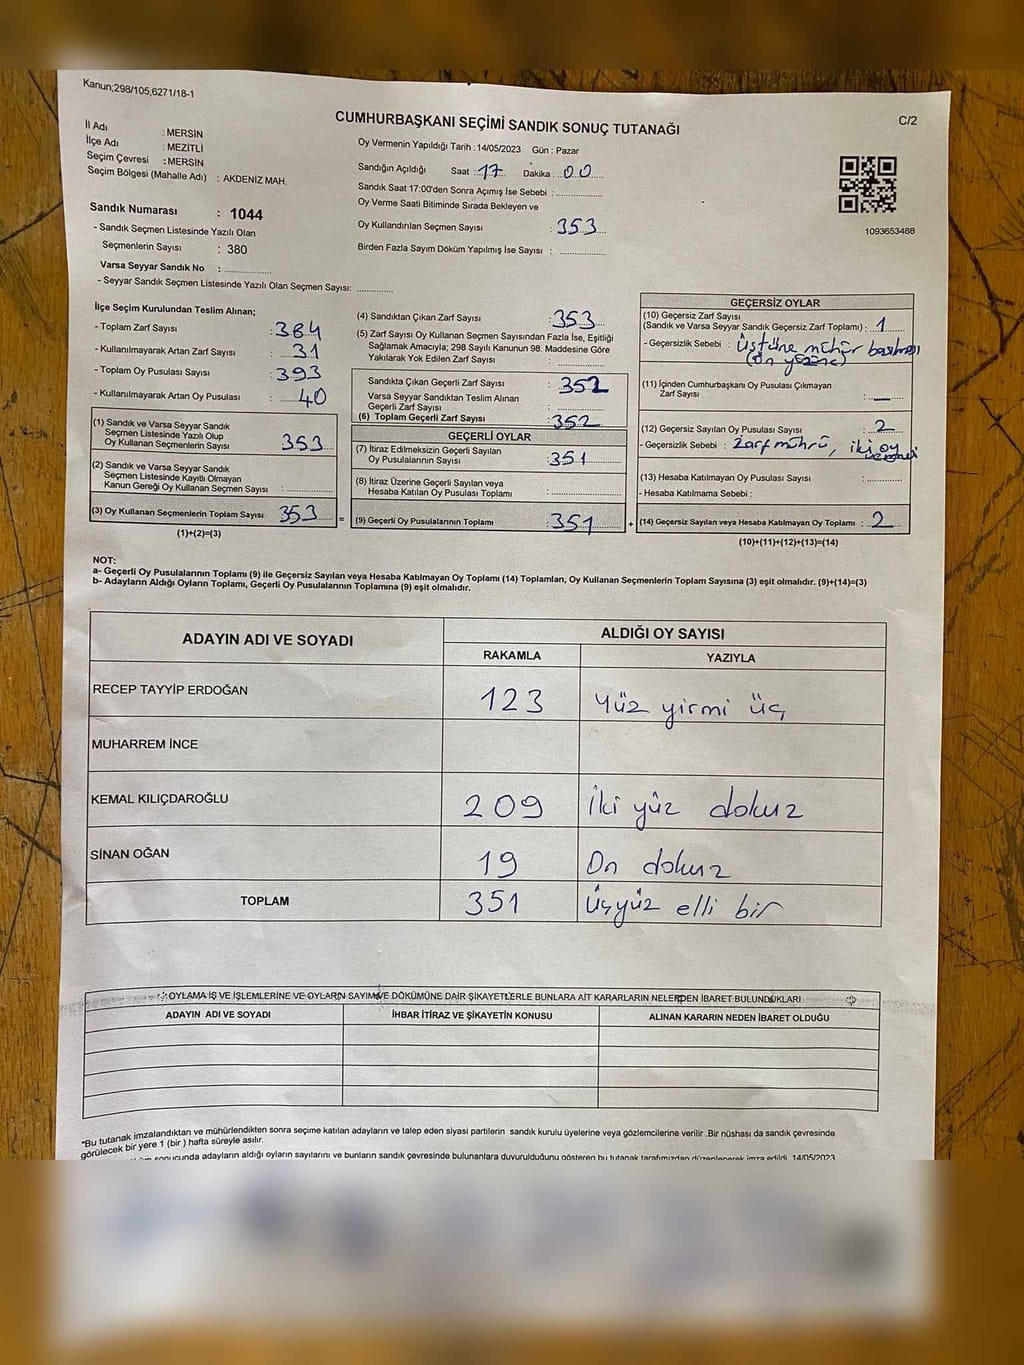 Kanun;298/105;6271/18-1
C/2
CUMHURBAŞKANI SEÇİMİ SANDIK SONUÇ TUTANAĞI
İl Adı : MERSİN
İlçe Adı : MEZİTLİ
Seçim Çevresi : MERSİN
Seçim Bölgesi (Mahalle Adı) : AKDENİZ MAH.
Sandık Numarası : 1044
- Sandık Seçmen Listesinde Yazılı Olan
Seçmenlerin Sayısı : 380
Varsa Seyyar Sandık No : ..............
- Seyyar Sandık Seçmen Listesinde Yazılı Olan Seçmen Sayısı: ............
Oy Vermenin Yapıldığı Tarih : 14/05/2023 Gün : Pazar
Sandığın Açıldığı Saat : 17 Dakika : 00
Sandık Saat 17:00'den Sonra Açımış İse Sebebi : ..............
Oy Verme Saati Bitiminde Sırada Bekleyen ve
Oy Kullandırılan Seçmen Sayısı : 353
Birden Fazla Sayım Döküm Yapılmış İse Sayısı : ..............
1093653488
İlçe Seçim Kurulundan Teslim Alınan;
- Toplam Zarf Sayısı : 384
- Kullanılmayarak Artan Zarf Sayısı : 31
- Toplam Oy Pusulası Sayısı : 393
- Kullanılmayarak Artan Oy Pusulası : 40
(1) Sandık ve Varsa Seyyar Sandık
Seçmen Listesinde Yazılı Olup
Oy Kullanan Seçmenlerin Sayısı : 353
(2) Sandık ve Varsa Seyyar Sandık
Seçmen Listesinde Kayıtlı Olmayan
Kanun Gereği Oy Kullanan Seçmen Sayısı : ..............
(3) Oy Kullanan Seçmenlerin Toplam Sayısı : 353 =
(1)+(2)=(3)
(4) Sandıktan Çıkan Zarf Sayısı : 353
(5) Zarf Sayısı Oy Kullanan Seçmen Sayısından Fazla İse, Eşitliği
Sağlamak Amacıyla; 298 Sayılı Kanunun 98. Maddesine Göre
Yakılarak Yok Edilen Zarf Sayısı : ..............
Sandıkta Çıkan Geçerli Zarf Sayısı : 352
Varsa Seyyar Sandıktan Teslim Alınan
Geçerli Zarf Sayısı : ..............
(6) Toplam Geçerli Zarf Sayısı : 352
GEÇERLİ OYLAR
(7) İtiraz Edilmeksizin Geçerli Sayılan
Oy Pusulalarının Sayısı : 351
(8) İtiraz Üzerine Geçerli Sayılan veya
Hesaba Katılan Oy Pusulası Toplamı : ..............
(9) Geçerli Oy Pusulalarının Toplamı : 351 +
GEÇERSİZ OYLAR
(10) Geçersiz Zarf Sayısı
(Sandık ve Varsa Seyyar Sandık Geçersiz Zarf Toplamı) : 1
- Geçersizlik Sebebi : Üstüne mühür basılması
(Ön yüzüne)
(11) İçinden Cumhurbaşkanı Oy Pusulası Çıkmayan
Zarf Sayısı : —
(12) Geçersiz Sayılan Oy Pusulası Sayısı : 2
- Geçersizlik Sebebi : Zarf mührü, iki oy
(13) Hesaba Katılmayan Oy Pusulası Sayısı : ..............
- Hesaba Katılmama Sebebi :
(14) Geçersiz Sayılan veya Hesaba Katılmayan Oy Toplamı : 2
(10)+(11)+(12)+(13)=(14)
NOT:
a- Geçerli Oy Pusulalarının Toplamı (9) ile Geçersiz Sayılan veya Hesaba Katılmayan Oy Toplamı (14) Toplamları, Oy Kullanan Seçmenlerin Toplam Sayısına (3) eşit olmalıdır. (9)+(14)=(3)
b- Adayların Aldığı Oyların Toplamı, Geçerli Oy Pusulalarının Toplamına (9) eşit olmalıdır.
ADAYIN ADI VE SOYADI ALDIĞI OY SAYISI
RAKAMLA YAZIYLA
RECEP TAYYİP ERDOĞAN 123 Yüz yirmi üç
MUHARREM İNCE
KEMAL KILIÇDAROĞLU 209 İki yüz dokuz
SİNAN OĞAN 19 On dokuz
TOPLAM 351 Üçyüz elli bir
OYLAMA İŞ VE İŞLEMLERİNE VE OYLARIN SAYIM VE DÖKÜMÜNE DAİR ŞİKAYETLERLE BUNLARA AİT KARARLARIN NELERDEN İBARET BULUNDUKLARI
ADAYIN ADI VE SOYADI İHBAR İTİRAZ VE ŞİKAYETİN KONUSU ALINAN KARARIN NEDEN İBARET OLDUĞU
*Bu tutanak imzalandıktan ve mühürlendikten sonra seçime katılan adayların ve talep eden siyasi partilerin sandık kurulu üyelerine veya gözlemcilerine verilir .Bir nüshası da sandık çevresinde
görülecek bir yere 1 (bir ) hafta süreyle asılır.
sonucunda adayların aldığı oyların sayılarını ve bunların sandık çevresinde bulunanlara duyurulduğunu gösteren bu tutanak tarafımızdan düzenlenerek imza edildi. 14/05/2023